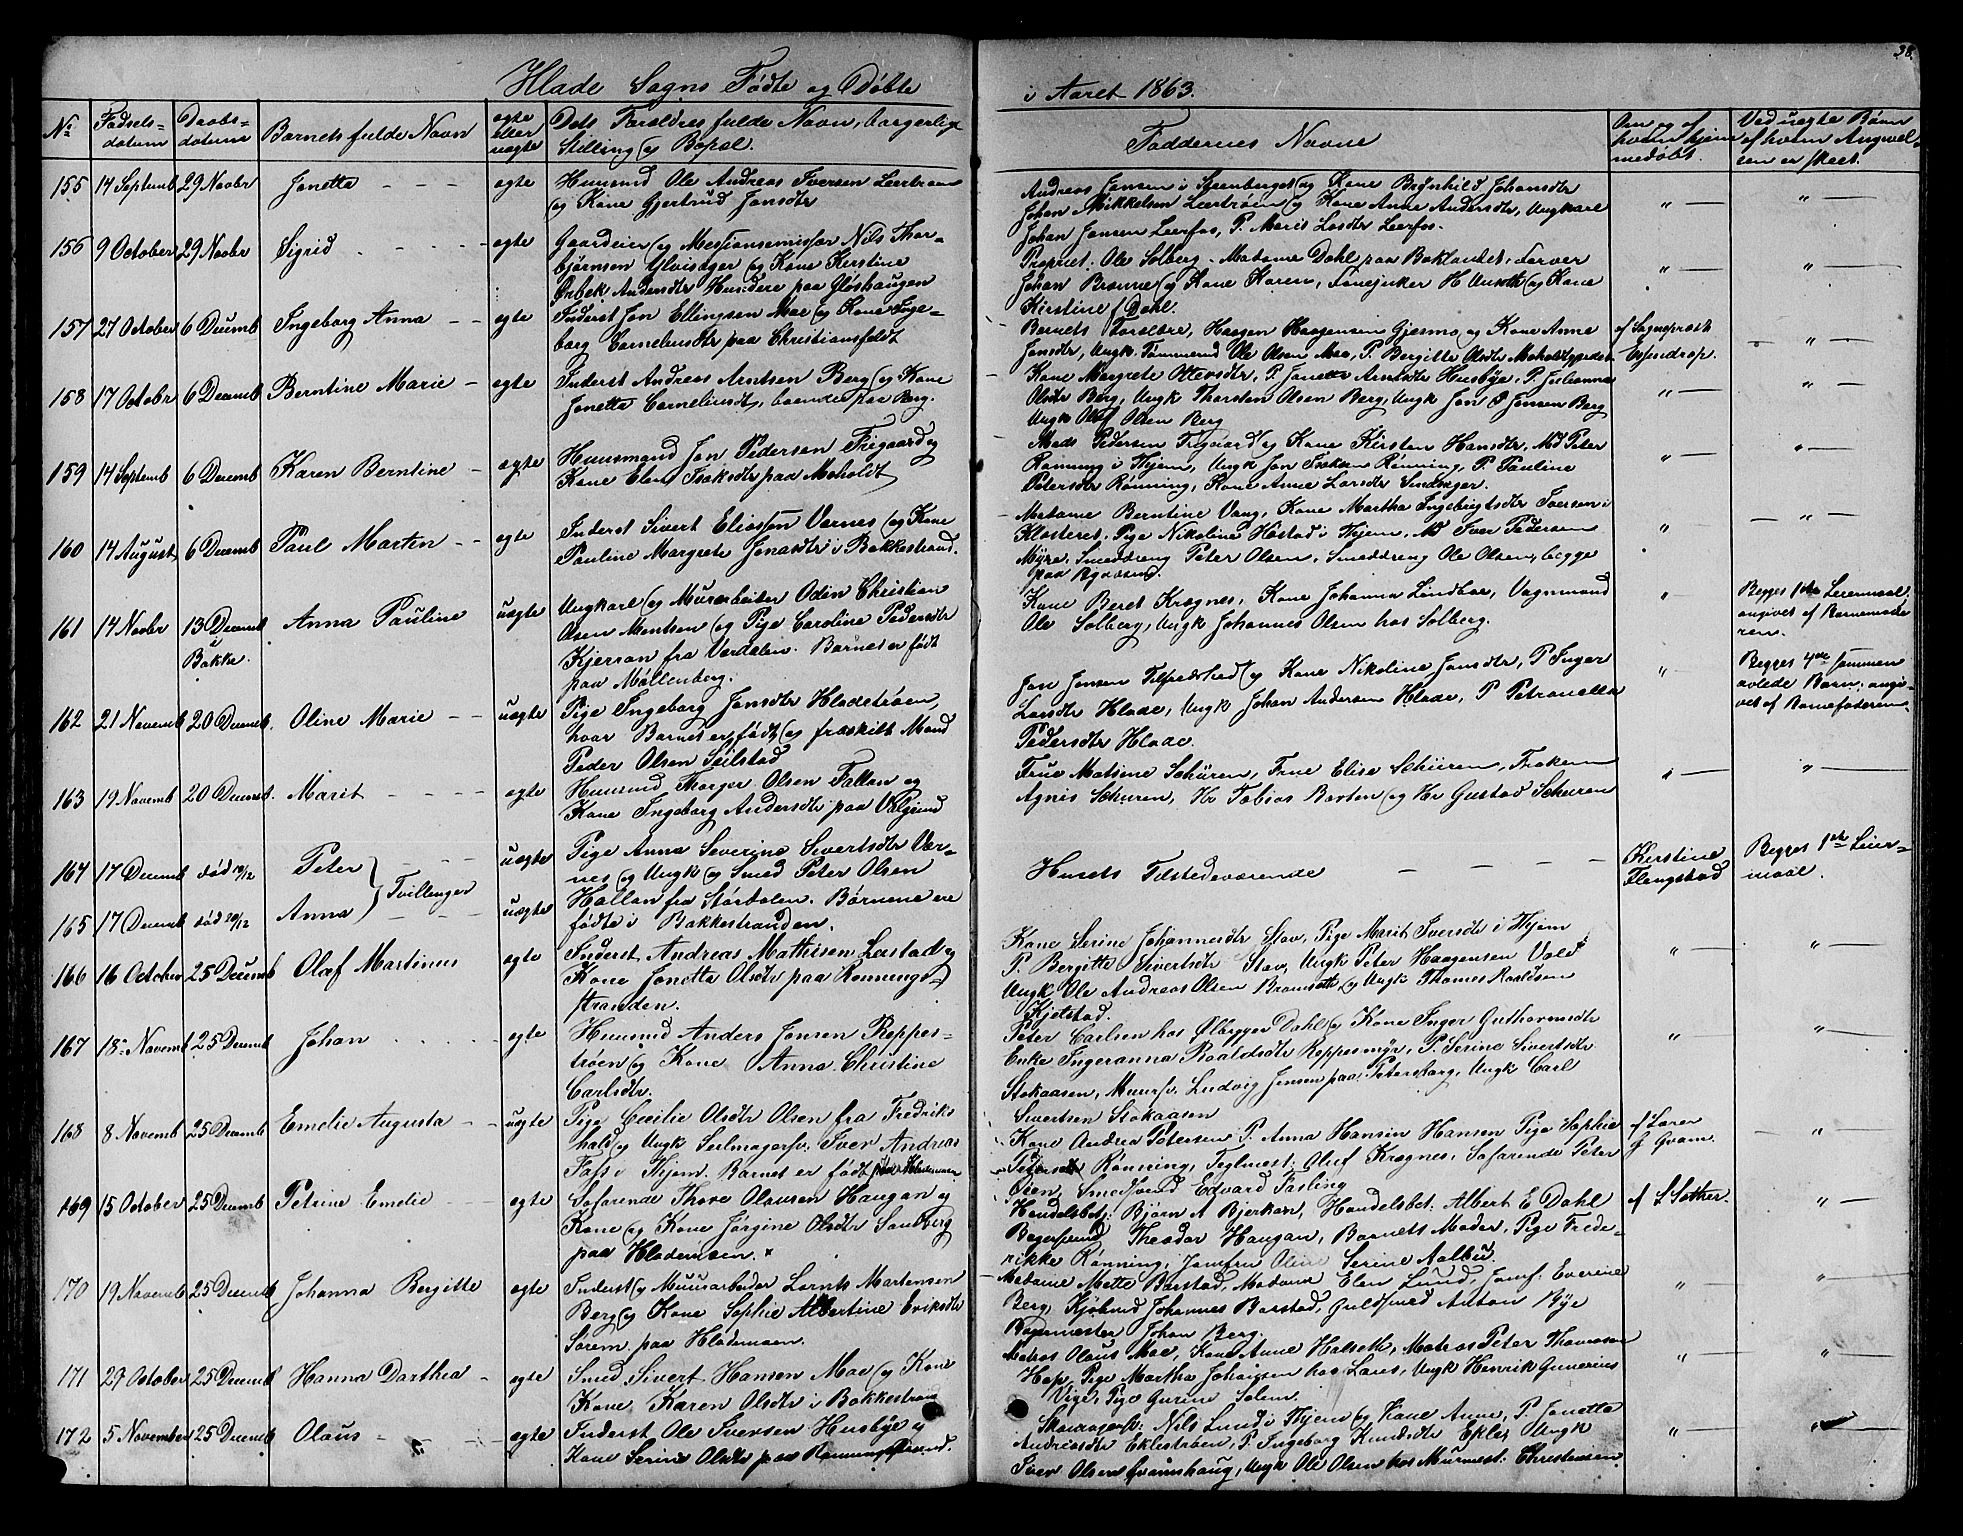 38.
Hlade Sogns Fødte og Døbte
i Aaret 1863.
No
Fødsels=
datum
Daabs=
datum
Barnets fulde Navn
ægte
eller
uægte
Dets Forældres fulde Navn, borgerlige
Stilling og Bopæl.
Faddernes Navne
Om og af
hvem hjem=
medøbt.
Ved uægte Børn
af hvem Angivel=
sen er skeet.
155 14 Septemb 29 Novbr Jonetta - - - ægte Huusmd Ole Andreas Iversen Leertrøen
og Kone Gjertrud Jonsdtr
Andreas Jonsen i Steenberget og Kone Brynhild Johansdtr
Johan Mikkelsen Leertrøen og Kone Anne Andersdtr, Ungkarl
Johan Jonsen Leerfos, P. Marit Larsdtr Leerfos.
156 9 October 29 Novbr Sigrid ægte Gaardeier og Missionsemissær Nils Thor=
bjørnsen Ylvisager og Kone Kirstine
Ørbek Andersdtr Hundere paa Gløshaugen
Propriet: Ole Solberg - Madame Dahl paa Baklandet. Farver
Johan Bromme og Kone Karen, Fanejunker H og Kone
Kirstine f Dahl.
157 27 October 6 Decemb Ingeborg Anna - - ægte Inderst Jon Ellingsen Moe og Kone Inge=
borg Corneliusdtr paa Christiansfeldt
Barnets Forældre, Haagen Haagensen Gjesmo og Kone Anne
Jonsdtr, Ungk. Tømmermd Ole Olsen Moe, P. Bergitte Olsdtr Moholt
af Sogneprest
Espedrop.
158 17 Octobr 6 Decemb Berntine Marie - ægte Inderst Andreas Arntsen Berg og Kone
Jonetta Corneliusdtr, boende paa Berg.
Kone Margrete Ottersdtr, P. Jonetta Arntsdtr Husbye, P. Julianna
Olsdtr Berg, Ungk Thorsten Olsen Berg, Ungk Jon Jonsen Berg
Ungk Oluf Olsen Berg
159 14 Septemb 6 Decemb Karen Berntine - ægte Huusmand Jon Pedersen Fregaard og
Kone Elen Isaksdtr paa Moholdt
Mads Pedersen Fregaard og Kone Kirsten Hansdtr, Md Peter
Rønning i Thjem, Ungk Jon Isaksen Rønning, P. Pauline
Petersdtr Rønning, Kone Anne Larsdtr
160 14 August 6 Decemb Paul Martin - - ægte Inderst Sivert Eliassen Vornes og Kone
Pauline Margrete Jonasdtr i Bakkestrand.
Madame Berntine Vang, Kone Martha Ingebrigtsdtr Iversen i
Klosteret, Pige Nikoline Hostad i Thjem, Md Iver Pedersen
Myre, Smeddreng Peter Olsen, Smeddreng Ole Olsen, begge
paa
161 14 Novbr 13 Decemb
i
Bakke. Anna Pauline uægte Ungkarl og Murarbeider Odin Christian
Olsen Mentsen og Pige Caroline Pedersdtr
Kjerran fra Værdalen. Barnet er født
paa Møllenberg.
Kone Beret Kregnes, Kone Johanna Lindboe, Vognmand
Ole Solberg, Ungk Johannes Olsen hos Solberg.
Begges 1ste Leiermaal,
angivet af Barnemode=
ren.
162 21 Novemb 20 Decemb. Oline Marie - - uægte Pige Ingeborg Jonsdtr Hladetrøen,
hvor Barnet er født, og fraskilt Mand
Peder Olsen Seilstad
Jon Jonsen Tilpedstad og Kone Nikoline Jonsdtr, P Inger
Larsdtr Hlade, Ungk Johan Andersen Hlade, P Petronella
Pedersdtr Hlade.
Begges 4de sammen
avlede Barn, angi=
vet af Barnefaderen
163 19 Novemb 20 Decemb. Marit - - - ægte Huusmd Thorger Olsen Fallan og
Kone Ingeborg Andersdtr paa Valgrind
Frue Matsine Schüren, Frue Elise Schüren, Frøken
Agnis Schuren, Hr Tobias Barten og Hr Gustad Schuren
164 17 Decemb død 19/12 Peter
165 17 Decemb død 20/12 Anna
Tvillinger
uægte
uægte
Pige Anna Severine Sivertsdtr Vær=
nes og Ungk og Smed Peter Olsen
Hallan fra Størdalen. Børnene ere
fødte i Bakkestranden.
Husets Tilstedeværende
Kirstine
Flengstad
Begges 1ste Leier=
maal.
166 16 October 25 Decemb Olaf Martinus ægte Inderst Andreas Mathisen Lostad og
Kone Jonetta Olsdtr paa Rønnings=
stranden.
Kone Serine Johannesdtr Stav, Pige Marit Iversdtr i Thjem
P. Bergitte Sivertsdtr Stav, Ungk Peter Haagensen Vold
Ungk Ole Andreas Olsen Bromseth, og Ungk Thomas Roaldsen
Kjelstad.
167 18 Novemb 25 Decemb Johan ægte Huusmd Anders Jonsen Reppes=
trøen og Kone Anna Christine
Carlsdtr.
Peter Carlsen hos Ølbrygger Dahl og Kone Inger Guthormsdtr
Enke Ingeranna Roaldsdtr Reppesmyr, P. Serine Sivertsdtr
Stokaasen, Muursv. Ludvig Jensen paa Petersborg, Ungk Carl
Sivertsen Stokaasen
168 8 Novemb 25 Decemb Emelie Augusta - - uægte Pige Cecilie Olsdtr Olsen fra Fredriks
hald og Ungk Seilmagersv: Iver Andreas
i Thjem. Barnet er født paa Hlademoen
Kone Andrea Petersen P. Anna Hansin Hansen Pige Sophie
Rønning, Teglmest: Oluf Krognes, Søfarende Peter
Øien, Smedsvend Edvard Fasting
af Lærer
G Gram.
169 15 October 25 Decemb Petrine Emelie ægte Søfarende Thore Olausen Haugan og
Kone og Kone Jørgine Olsdtr Sandberg
paa Hlademoen.
Handelsbet: Bjørn A Bjerkan, Handelsbet: Albert E. Dahl
Bagersvend Theodor Haugan, Barnets Moder, Pige Frede=
rikke Rønning, Jomfru Oline Serine Aalbu.
af S. Sather.
170 19 Novemb 25 Decemb Johanna Bergitte ægte Inderst og Muurarbeider Lornts Martensen
Berg og Kone Sophie Albertine Eriksdtr
Sørem paa Hlademoen.
Madame Mette Borstad, Madame Elen Lund, Jomf. Everine
Berg, Kjøbmd Johannes Borstad, Guldsmed Anton Bye
Bagermester Johan Berg.
171 29 October 25 Decemb Hanna Darthea - ægte Smed Sivert Hansen Moe og Kone
Kone Karen Olsdtr i Bakkestrand
Matros Olaus Moe, Kone Anne Halseth, Matros Peter Thomassen
Hop, Pige Martha Johansen hos Lars, Ungk Henrik Gunerius
Vige, Pige Gurine Solem.
172 5 November 25 Decemb Olaus - ægte Inderst Ole Iversen Husbye og
Kone Serine Olsdtr paa Rønningstrand.
Nils Lund i Thjem og Kone Anne, P. Jonetta
Andreasdtr Eklestrøen, P. Ingeborg Knudsdtr Ekle, Ungk
Iver Olsen Gramshaug, Ungk Ole Olsen hos Murmest: Christensen